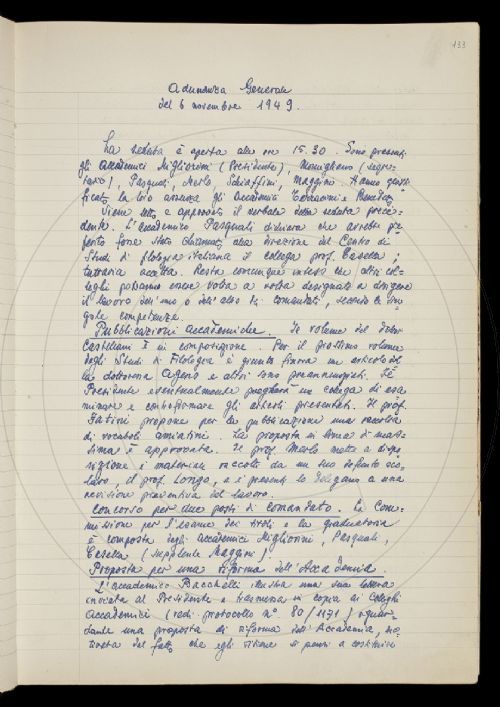 133
Adunanza Generale
del 6 novembre 1949.
La seduta è aperta alle ore 15.30. Sono presenti
gli Accademici Migliorini (Presidente), Momigliano (segre-
tario), Pasquali, Merlo, Schiaffini, Maggini. Hanno giusti-
ficato la loro assenza gli Accademici Terracini e Benedetto
Viene letto e approvato il verbale della seduta prece-
dente. L'Accademico Pasquali dichiara che avrebbe pre-
ferito fosse stato chiamato alla direzione del Centro di
Studi di filologia italiana il collega prof. Casella;
tuttavia accetta. Resta comunque inteso che altri col-
leghi potranno essere volta a volta designati a dirigere
il lavoro dell'uno o dell'altro dei comandati, secondo le sin-
gole competenze.
Pubblicazioni accademiche. Il volume del dott.
Castellani è in composizione. Per il prossimo volume
degli Studi di Filologia è giunto finora un articolo del-
la dottoressa Ageno e altri sono preannunziati. Il
Presidente eventualmente pregherà un collega di esa
minare e controfirmare gli articoli presentati. Il prof.
Fatini propone per la pubblicazione una raccolta
di vocaboli amiatini. La proposta in linea di mas-
sima è approvata. Il prof. Merlo mette a dispo-
sizione i materiali raccolti da un suo defunto sco-
laro, il prof. Longo, e i presenti lo delegano a una
revisione preventiva del lavoro.
Concorso per due posti di comandato. La Com-
missione per l'esame dei titoli e la graduatoria
è composta degli Accademici Migliorini, Pasquali,
Casella (supplente Maggini).
Proposta per una riforma dell'Accademia.
L'accademico Bacchelli illustra una sua lettera
inviata al Presidente e trasmessa in copia ai Colleghi
Accademici (vedi protocollo n° 80/1171) riguar-
dante una proposta di riforma dell'Accademia, mo-
tivata dal fatto che egli ritiene si pensi a costituire